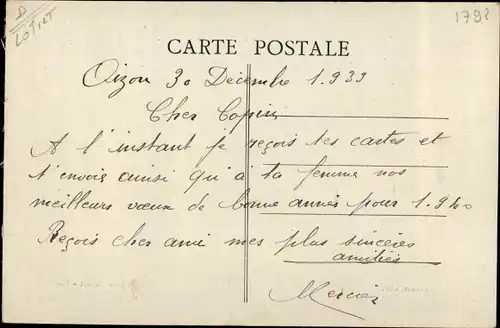 D
Loiret
1798
CARTE POSTALE
Oizon 30 Décembre 1.939
Cher Copin
A l'instant je reçois tes cartes et
t'envoie ainsi qu'à ta femme nos
meilleurs vœux de bonne année pour 1.940
Reçois cher ami mes plus sincères
amitiés
Mercier